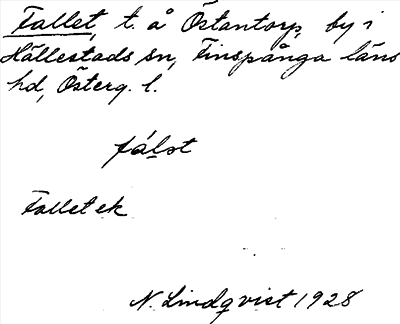 Fallet, t. å Östantorp, by i
Hällestads sn, Finspånga läns
hd, Österg. l.
fálst
Fallet ek
N. Lindqvist 1928